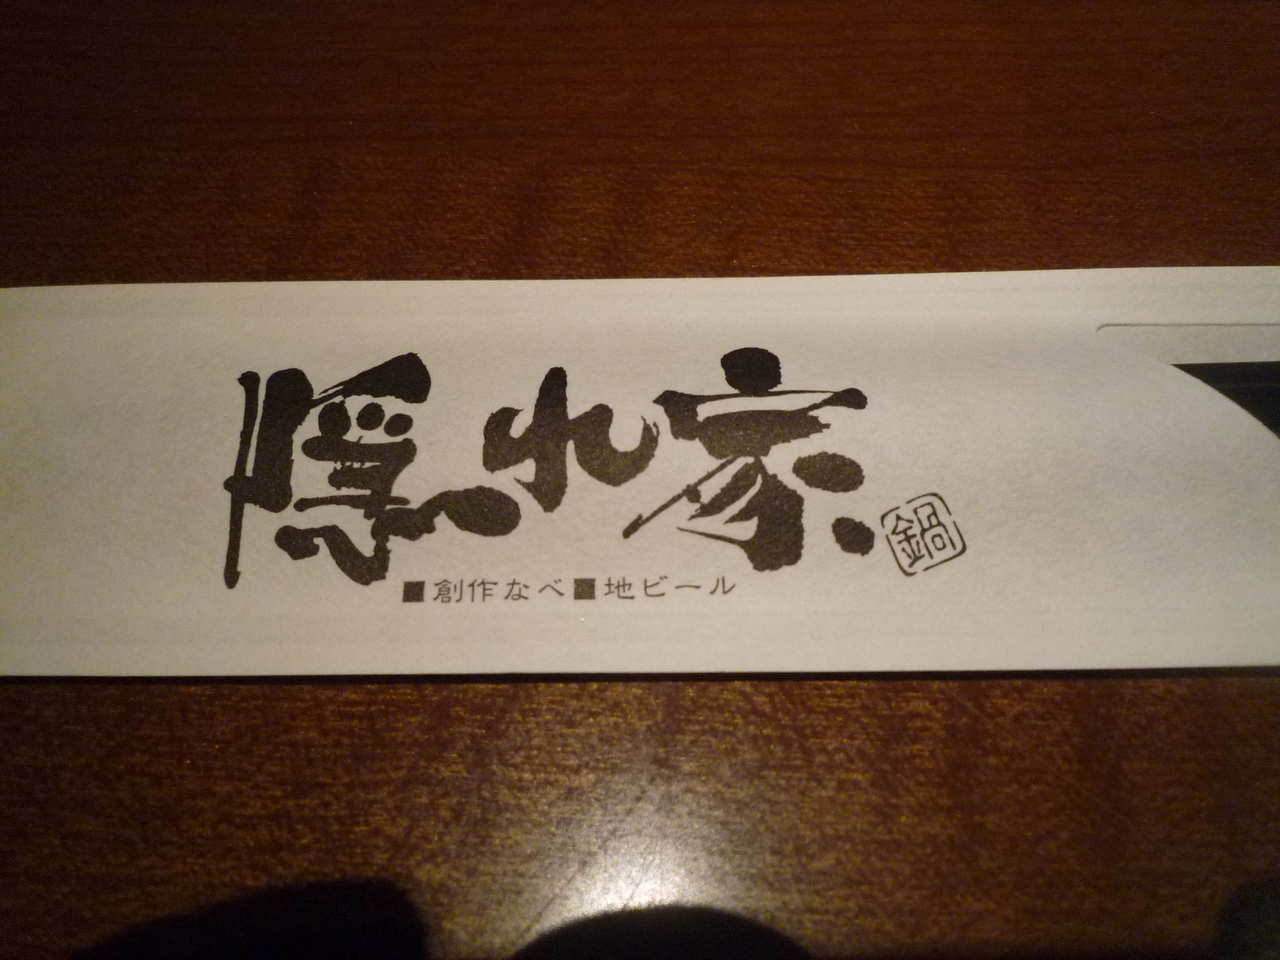 隠れ家
鍋
■創作なべ■地ビール